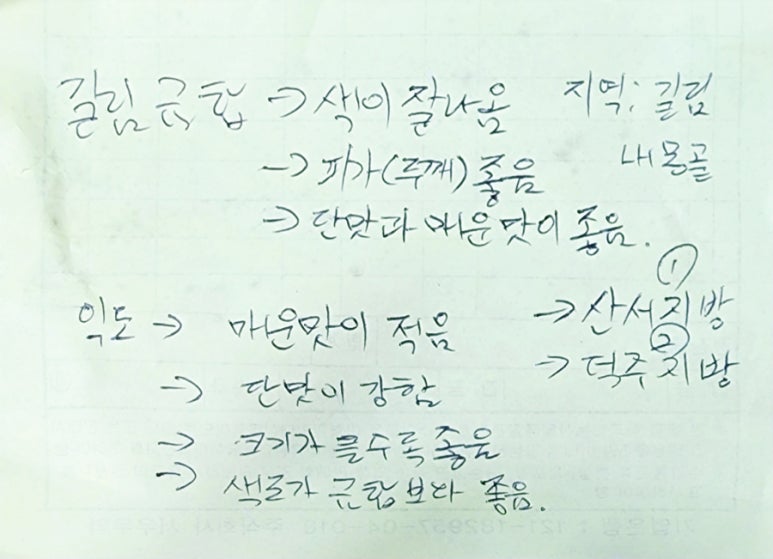 길림 금탑 → 색이 잘나옴 지역: 길림
→ 피가(두께) 좋음 내몽골
→ 단맛과 매운맛이 좋음.
익도 → 매운맛이 적음 → 산서지방 ①
→ 단맛이 강함 → 덕주지방 ②
→ 크기가 클수록 좋음
→ 색도가 금탑보다 좋음.